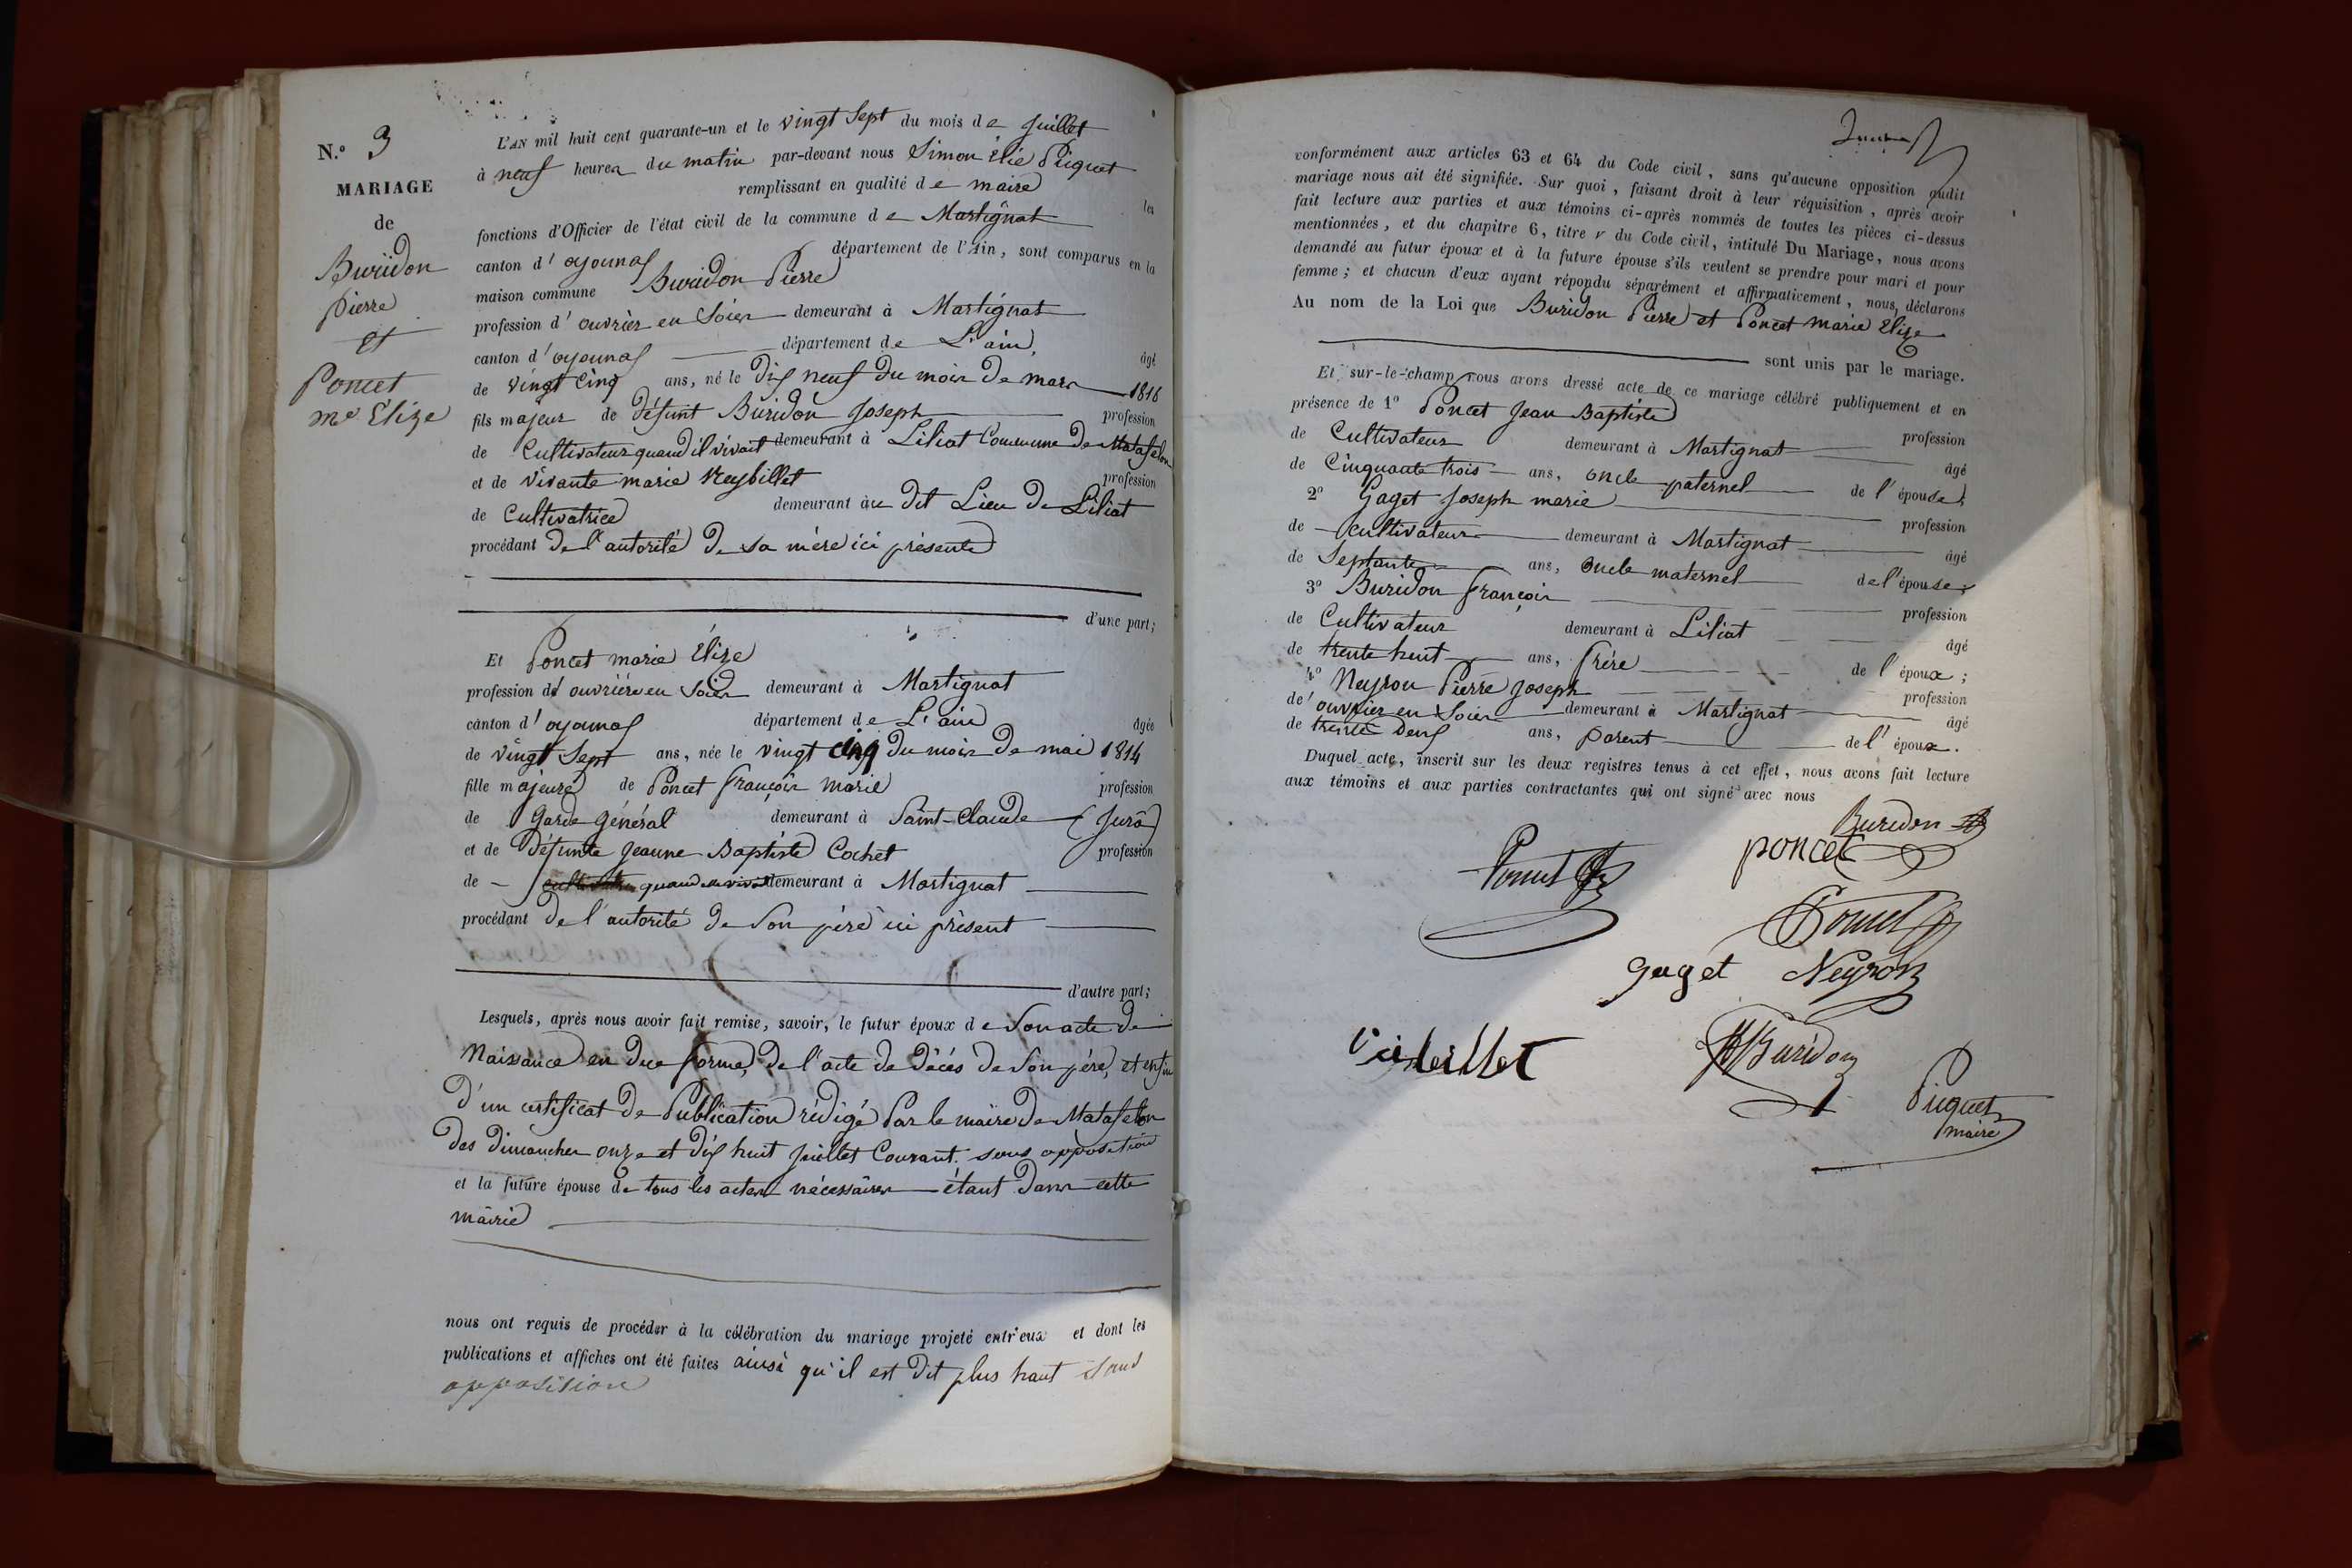 N.º 3
MARIAGE
de
Buridon
Pierre
et
Poncet
Mie Elize
L'AN mil huit cent quarante-un et le vingt Sept du mois de Juillet
à neuf heures du matin par-devant nous Simon Elie Piquet
remplissant en qualité de maire les
fonctions d'Officier de l'état civil de la commune de Martignat
canton d'oyonnax département de l'Ain, sont comparus en la
maison commune Buridon Pierre
profession d'ouvrier en Soies demeurant à Martignat
canton d'oyonnax département de L'ain, âgé
de vingt Cinq ans, né le dix neuf du mois de mars 1816
fils majeur de défunt Buridon Joseph profession
de Cultivateur quand il vivait demeurant à Liliat Commune de Matafelon
et de vivante marie Reybillet profession
de Cultivatrice demeurant au dit Lieu de Liliat
procédant de l'autorité de sa mère ici présente
d'une part;
Et Poncet marie Élize
profession d'ouvrière en Soies demeurant à Martignat
canton d'oyonnax département de L'ain âgée
de vingt Sept ans, née le vingt cinq du mois de mai 1814
fille majeure de Poncet françois marie profession
de Garde général demeurant à Saint-Claude (Jura)
et de défunte Jeanne Baptiste Cochet profession
de quand elle vivait demeurant à Martignat
procédant de l'autorité de Son père ici présent
d'autre part;
Lesquels, après nous avoir fait remise, savoir, le futur époux de Son acte de
Naissance en due forme, de l'acte de décès de Son père, et enfin
d'un certificat de Publication rédigé Par le maire de Matafelon
des dimanches onze et dix huit juillet Courant. sans opposition
et la future épouse de tous les actes nécessaires étant dans cette
mairie
nous ont requis de procéder à la célébration du mariage projeté entr'eux et dont les
publications et affiches ont été faites ainsi qu'il est dit plus haut sans
opposition
conformément aux articles 63 et 64 du Code civil, sans qu'aucune opposition audit
mariage nous ait été signifiée. Sur quoi, faisant droit à leur réquisition, après avoir
fait lecture aux parties et aux témoins ci-après nommés de toutes les pièces ci-dessus
mentionnées, et du chapitre 6, titre V du Code civil, intitulé Du Mariage, nous avons
demandé au futur époux et à la future épouse s'ils veulent se prendre pour mari et pour
femme; et chacun d'eux ayant répondu séparément et affirmativement, nous déclarons
Au nom de la Loi que Buridon Pierre et Poncet marie Elize
sont unis par le mariage.
Et sur-le-champ nous avons dressé acte de ce mariage célébré publiquement et en
présence de 1º Poncet Jean Baptiste profession
de Cultivateur demeurant à Martignat âgé
de Cinquante trois ans, oncle paternel de l'épouse;
2º Gaget Joseph marie profession
de cultivateur demeurant à Martignat âgé
de Septante ans, oncle maternel de l'épouse;
3º Buridon françois profession
de Cultivateur demeurant à Liliat âgé
de trente huit ans, frère de l'époux;
4º Neyron Pierre Joseph profession
de ouvrier en Soies demeurant à Martignat âgé
de trente deux ans, parent de l'époux.
Duquel acte, inscrit sur les deux registres tenus à cet effet, nous avons fait lecture
aux témoins et aux parties contractantes qui ont signé avec nous
Buridon
poncet
Poncet
Poncet
Gaget Neyron
Buridon
Piquet
maire